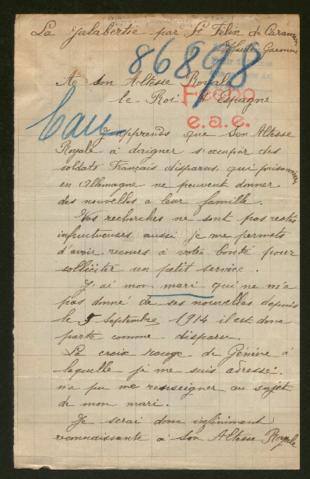 La Jalabertie par St Felix de Caraman
Haute Garonne
86898
A Son Altesse Royale
le Roi d'Espagne
Fecho
e.a.e.
J'apprends que Son Altesse
Royale a daigner s'occuper des
soldats Français disparus, qui prisonniers
en Allemagne ne peuvent donner
des nouvelles a leur famille.
Vos recherches ne sont pas restés
infructueuses aussi je me permets
d'avoir recours à votre bonté pour
solliciter un petit service.
J'ai mon mari qui ne m'a
pas donné de ses nouvelles depuis
le Septembre 1914 il est donc
porté comme disparu.
La croix rouge de Genève à
laquelle je me suis adressée
n'a pu me renseigner au sujet
de mon mari.
Je serai donc infiniment
reconnaissante à Son Altesse Royale